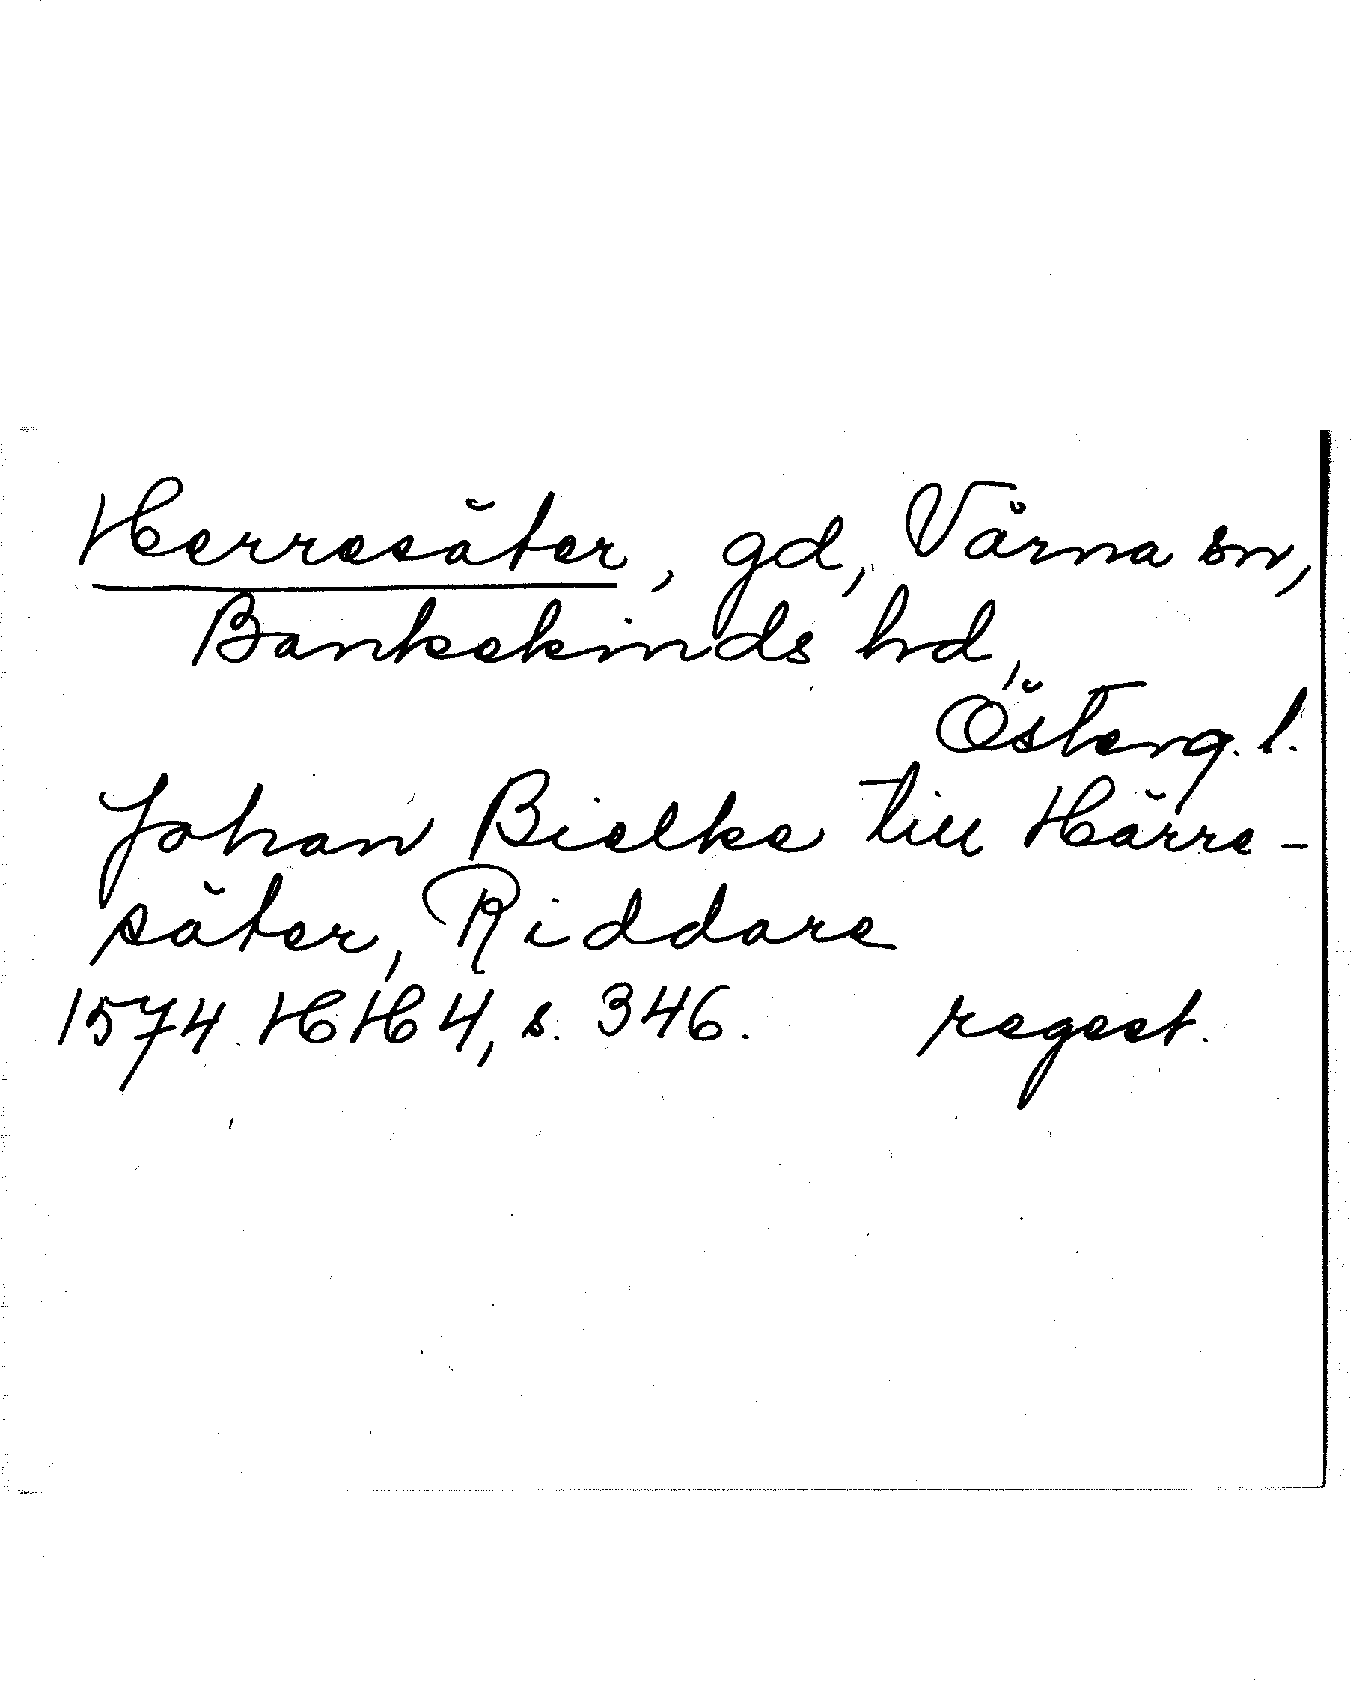 Herresäter, gd, Vårna sn,
Bankekinds hd,
Österg. l.
Johan Bielke till Härre-
säter, Riddare
1574. HH 4, s. 346. regest.